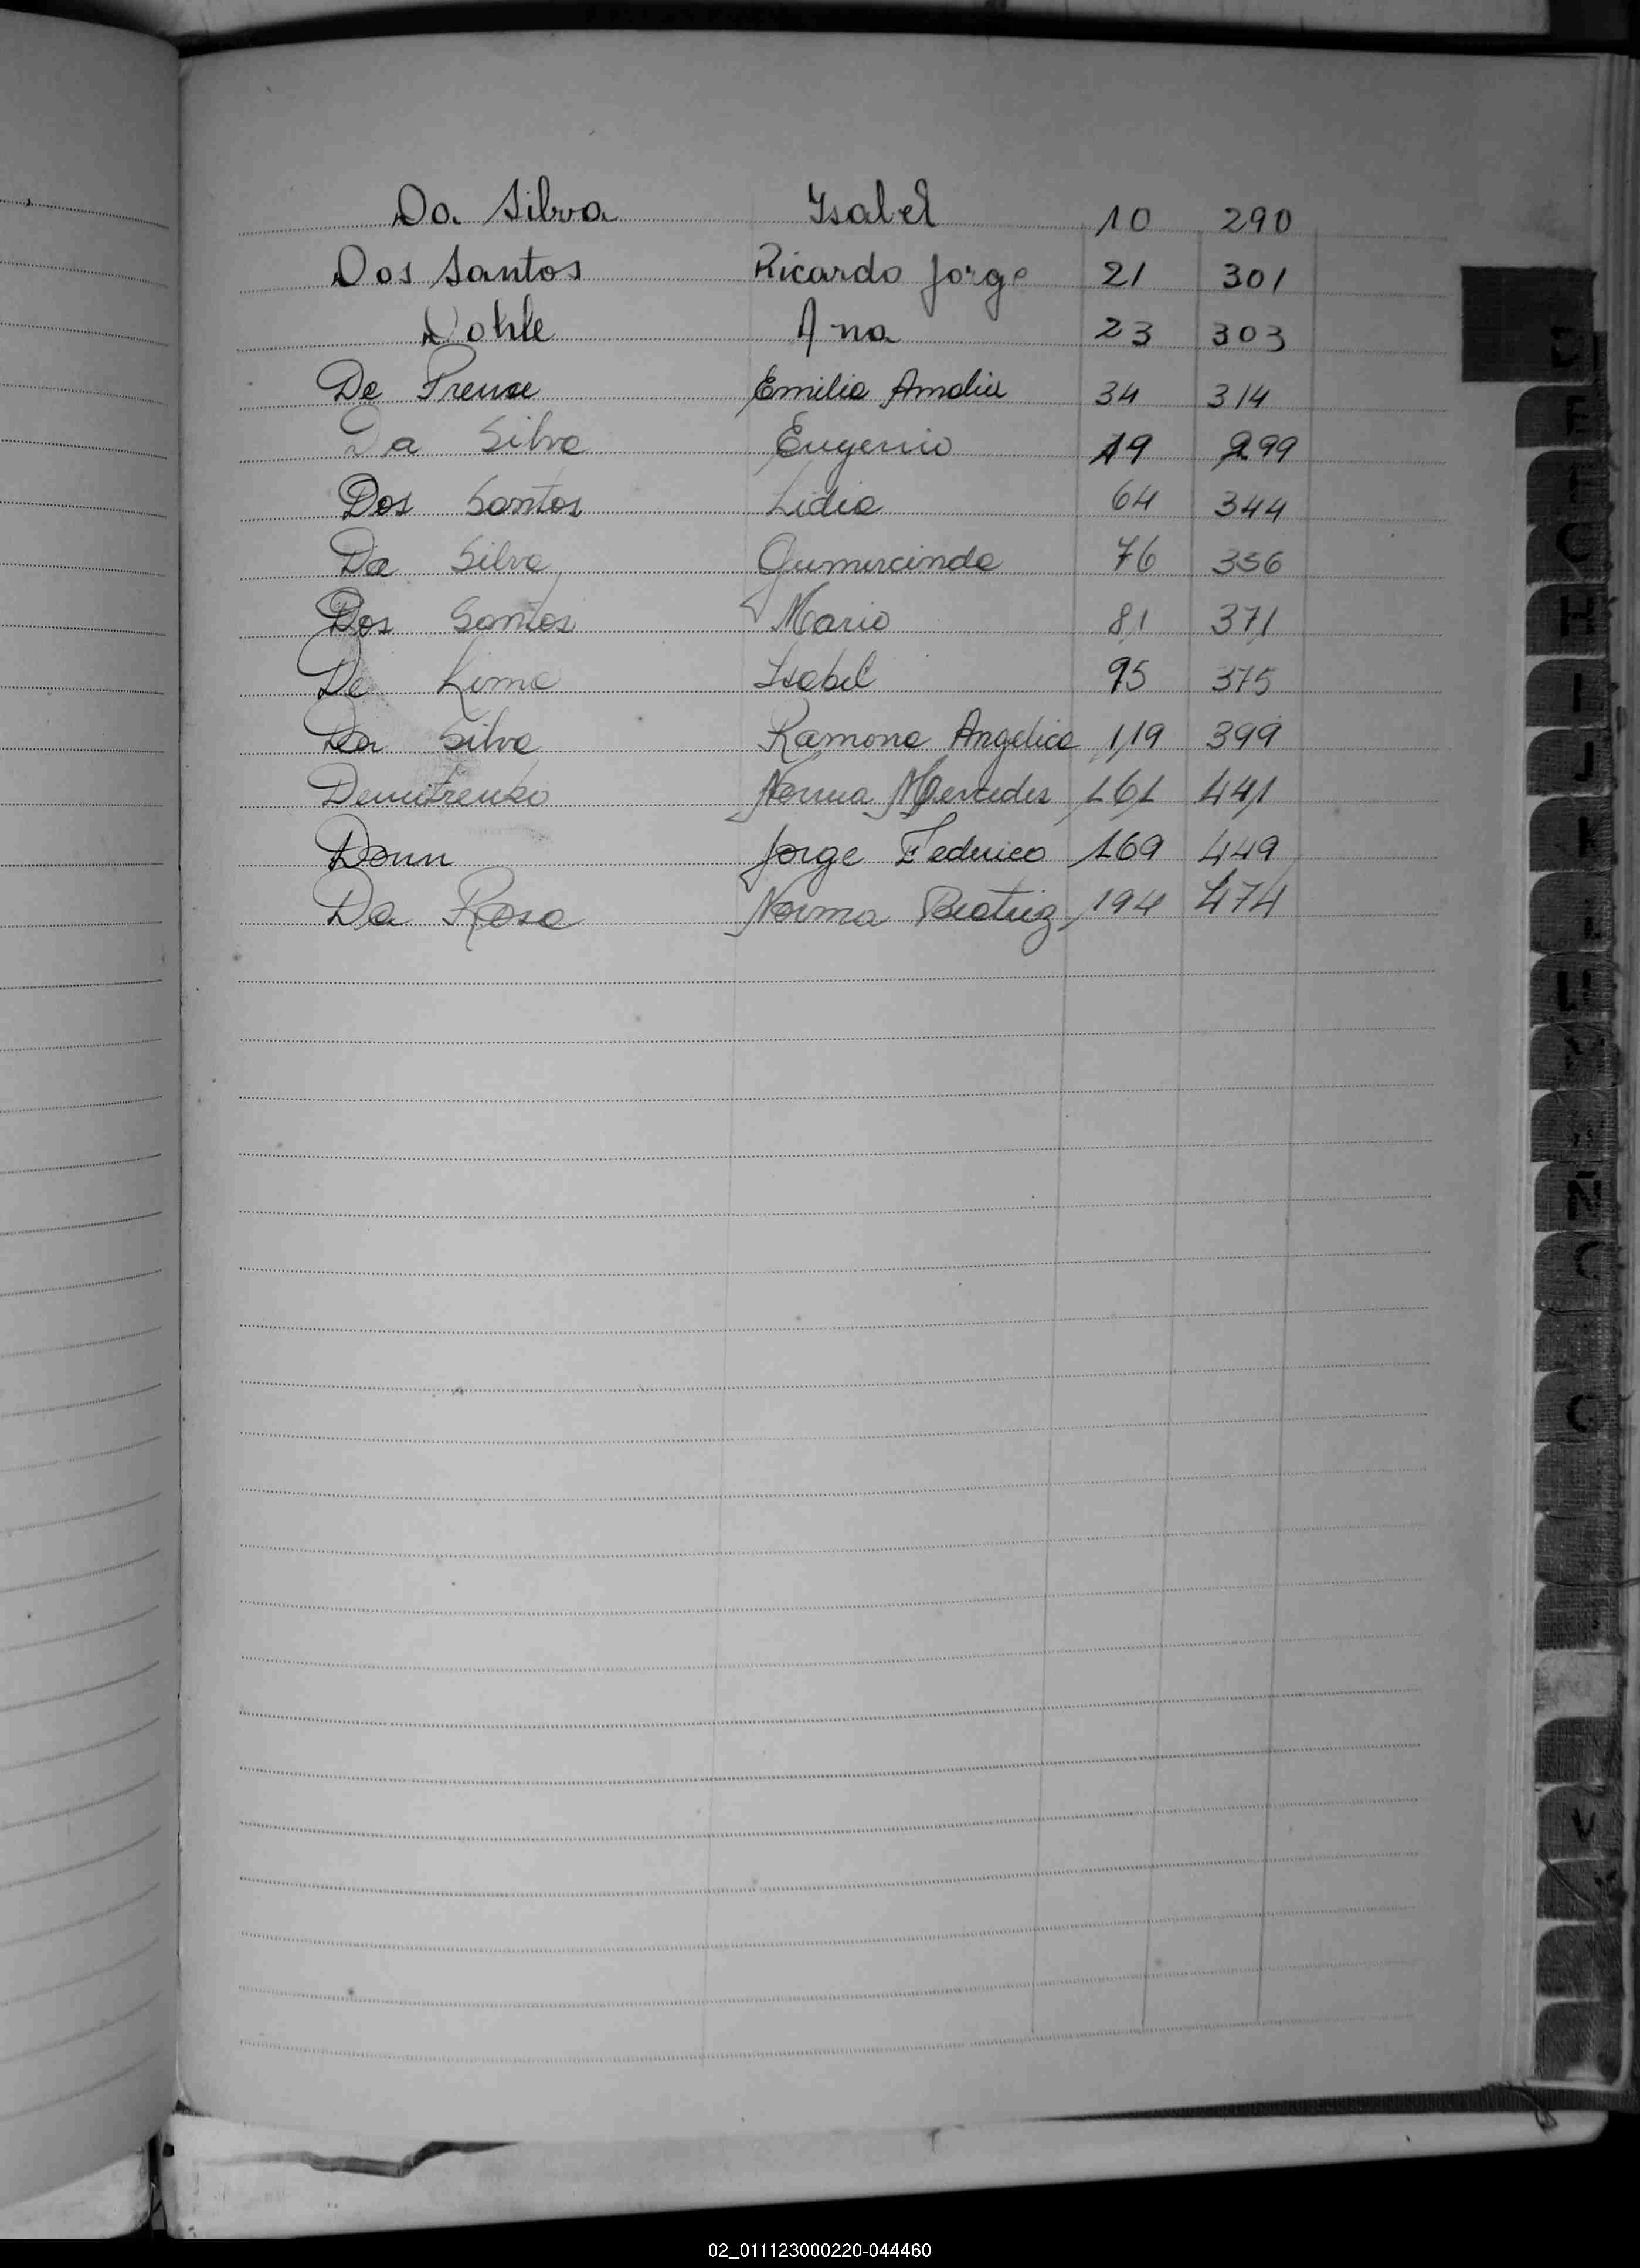 Da Silva Isabel 10 290
Dos Santos Ricardo Jorge 21 301
Dohle Ana 23 303
De Prenae Emilia Amalia 34 314
Da Silva Eugenio 19 299
Dos Santos Lidia 64 344
Da Silva Gumercindo 76 356
Dos Santos Mario 81 371
De Lima Isabel 95 375
Da Silva Ramona Angelica 119 399
Demitrenko Norma Mercedes 161 441
Donn Jorge Federico 169 449
Da Rosa Norma Beatriz 194 474
02_011123000220-044460